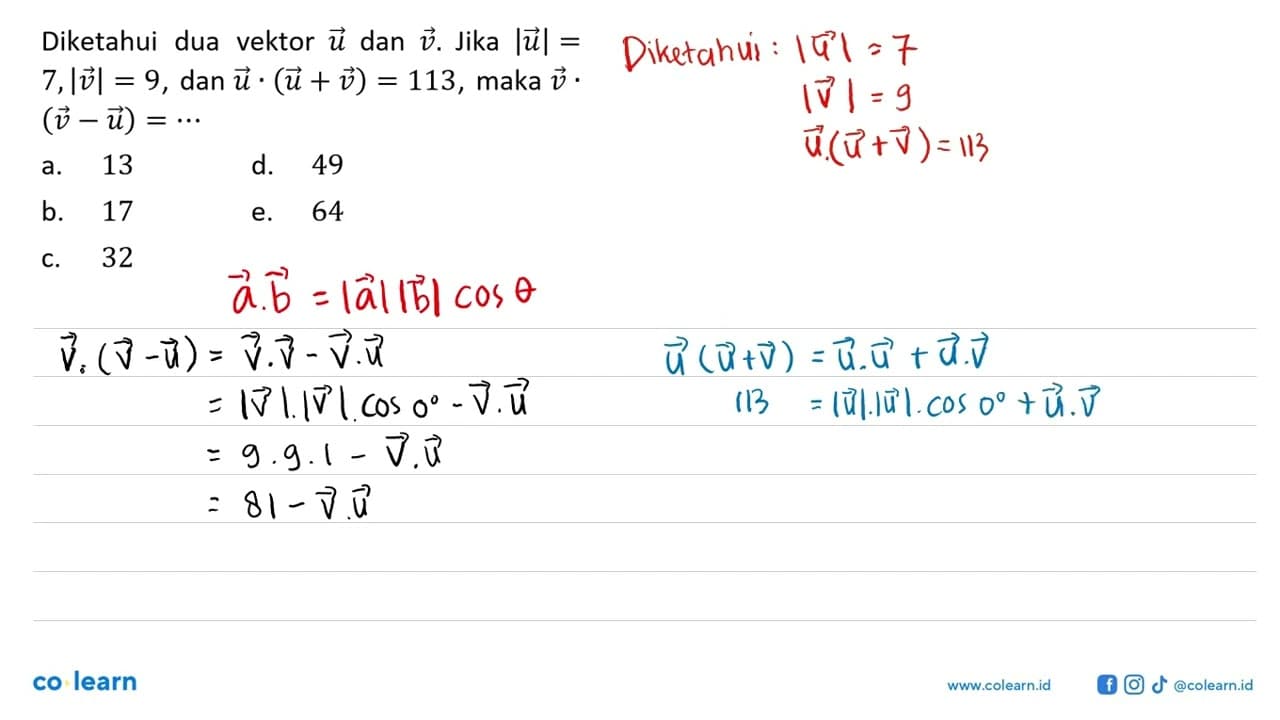 Diketahui dua vektor u⃗ dan v⃗. Jika |u⃗| =
7, |v⃗| = 9, dan u⃗ · (u⃗ + v⃗) = 113, maka v⃗ ·
(v⃗ − u⃗) = ⋯
a. 13 d. 49
b. 17 e. 64
c. 32
Diketahui : |u⃗| = 7
|v⃗| = 9
u⃗.(u⃗ + v⃗) = 113
a⃗.b⃗ = |a⃗||b⃗| cos θ
v⃗.(v⃗ - u⃗) = v⃗.v⃗ - v⃗.u⃗
= |v⃗|.|v⃗|.cos 0° - v⃗.u⃗
= 9.9.1 - v⃗.u⃗
= 81 - v⃗.u⃗
u⃗(u⃗+v⃗) = u⃗.u⃗ + u⃗.v⃗
113 = |u⃗|.|u⃗|.cos 0° + u⃗.v⃗
co learn
www.colearn.id
@colearn.id